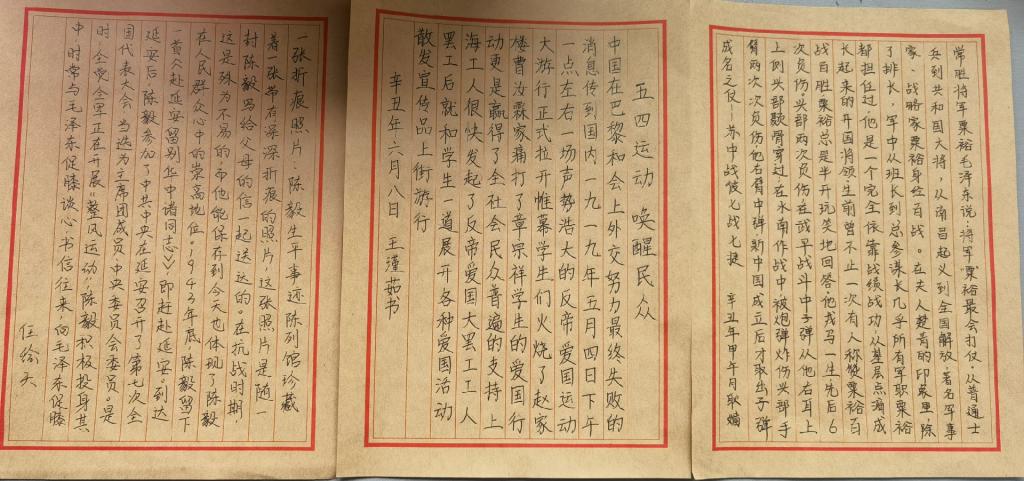 常胜将军粟裕毛泽东说:将军"粟裕最会打仗。从普通士
兵到共和国大将,从南昌起义到全国解放。著名军事
家、战略家粟裕身经百战。在夫人楚青的印象里除
了排长,军中从班长到总参谋长几乎所有军职粟裕
都担任过。他是一个完全依靠战绩战功从基层点滴成
长起来的开国将领。生前曾不止一次有人称赞粟裕百
战百胜粟裕总是半开玩笑地回答他戎马一生先后6
次负伤。头部两次负伤在武平战斗中子弹从他右耳上
侧头部颞骨穿过在水南作战中被炮弹炸伤头部手
臂两次次负伤他右臂中弹新中国成立后才取出子弹
成名之仗—苏中战役七战七捷 辛丑年甲午月耿
五四运动 唤醒民众
中国在巴黎和会上外交努力最终失败的
消息传到国内一九一九年五月四日下午
一点左右一场声势浩大的反帝爱国运动
大游行正式拉开帷幕学生们火烧了赵家
楼曹汝霖家痛打了章宗祥学生的爱国行
动更是赢得了全社会民众普遍的支持上
海工人很快发起了反帝爱国大罢工工人
罢工后就和学生一道展开各种爱国活动
散发宣传品上街游行
辛丑年六月八日 王瑾茹书
一张折痕照片:陈毅生平事迹陈列馆珍藏
着一张带有深深折痕的照片,这张照片是随一
封陈毅写给父母的信一起送达的。在抗战时期,
这是殊为不易的,而他能保存到今天也体现了陈毅
在人民群众心中的崇高地位。1943年底,陈毅留下
一首《赴延安留别华中诸同志》即赶赴延安。到达
延安后,陈毅参加了中共中央在延安召开了第七次全
国代表大会,当选为主席团成员,中央委员会委员。是
时,全党全军正在开展"整风运动",陈毅积极投身其
中,时常与毛泽东促膝谈心,书信往来,向毛泽东促膝